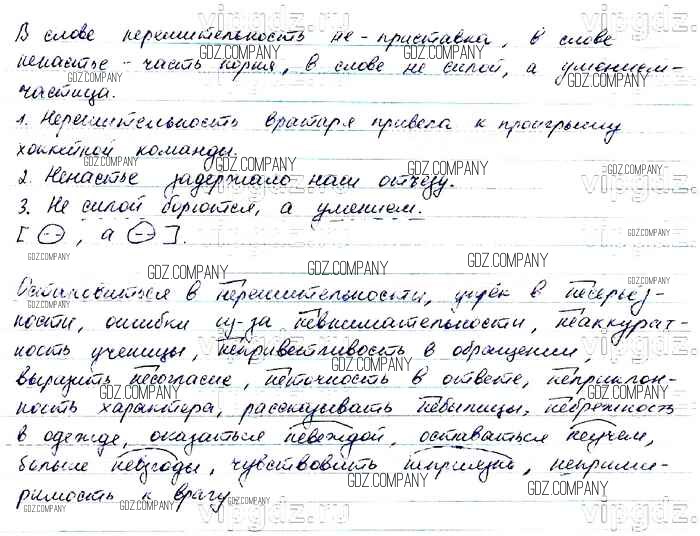 В слове нерешительность не - приставка, в слове
ненастье - часть корня, в слове не силой, а умением-
частица.
1. Нерешительность вратаря привела к проигрышу
хоккейной команды.
2. Ненастье задержало наш отъезд.
3. Не силой борются, а умением.
[ , а ].
Остановиться в нерешительности, упрёк в несерьёз-
ности, ошибки из-за невнимательности, неаккурат-
ность ученицы, неприветливость в обращении,
выразить несогласие, неточность в ответе, неприклон-
ность характера, рассказывать небылицы, небрежность
в одежде, оказаться невеждой, оставаться неучем,
больше невзгоды, чувствовать неприязнь, неприми-
римость к врагу.
GDZ.COMPANY
vipgdz.ru